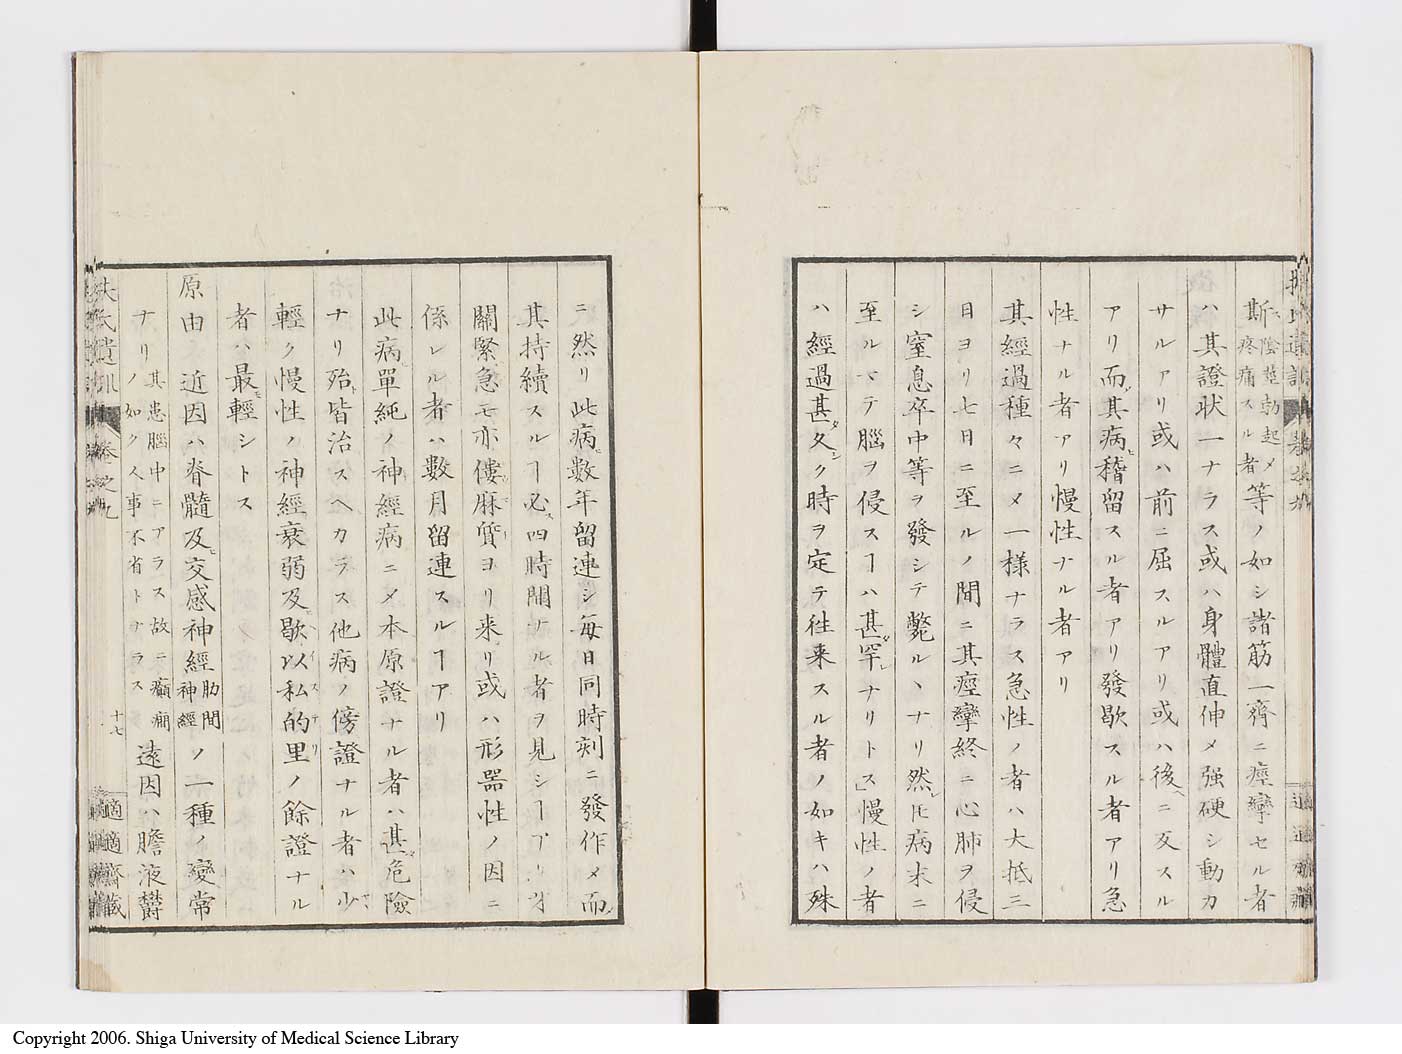 斯 陰莖勃起メ疼痛スル者 等ノ如シ諸筋一齊ニ痙攣セル者
ハ其證状一ナラス或ハ身體直伸メ强硬シ動カ
サルアリ或ハ前ニ屈スルアリ或ハ後ニ反スル
アリ而其病稽留スル者アリ發歇スル者アリ急
性ナル者アリ慢性ナル者アリ
其經過種々ニメ一様ナラス急性ノ者ハ大抵三
日ヨリ七日ニ至ルノ間ニ其痙攣終ニ心肺ヲ侵
シ窒息卒中等ヲ發シテ斃ルヽナリ然𪜈病末ニ
至ルマテ腦ヲ侵スヿハ甚罕ナリトス慢性ノ者
ハ經過甚久ク時ヲ定テ徃来スル者ノ如キハ殊
ニ然リ此病數年留連シ毎日同時刻ニ發作メ而
其持續スルヿ必四時間ナル者ヲ見シヿアリ牙
關緊急モ亦僂麻質ヨリ来リ或ハ形噐性ノ因ニ
係レル者ハ數月留連スルヿアリ
此病單純ノ神經病ニメ本原證ナル者ハ甚危險
ナリ殆皆治スヘカラス他病ノ傍證ナル者ハ少
輕ク慢性ノ神經衰弱及歇以私的里ノ餘證ナル
者ハ最輕シトス
原由 近因ハ脊髓及交感神經 肋間神經 ノ一種ノ變常
ナリ 其患腦中ニアラス故ニ癲癇ノ如ク人事不省トナラス 遠因ハ膽液欝
扶氏遺訓 巻之九
十七
適適齋藏